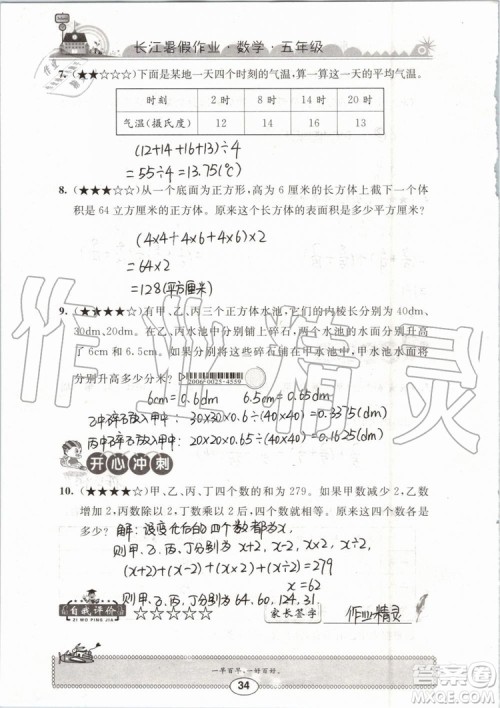 长江暑假作业·数学·五年级
7. (★★☆☆☆)下面是某地一天四个时刻的气温，算一算这一天的平均气温。
时刻 2时 8时 14时 20时
气温(摄氏度) 12 14 16 13
(12+14+16+13)÷4
=55÷4=13.75(℃)
8. (★★★☆☆)从一个底面为正方形，高为6厘米的长方体上截下一个体
积是64立方厘米的正方体。原来这个长方体的表面积是多少平方厘米？
(4×4+4×6+4×6)×2
=64×2
=128(平方厘米)
9. (★★★★☆)有甲、乙、丙三个正方体水池，它们的内棱长分别为40dm、
30dm、20dm。在乙、丙水池中分别铺上碎石，两个水池的水面分别升高
了6cm和6.5cm。如果将这些碎石分别铺到甲水池中，甲水池的水面
分别升高多少分米？
2006-0025-4559
6cm=0.6dm 6.5cm=0.65dm
乙中碎石放入甲中：30×30×0.6÷(40×40)=0.3375(dm)
丙中碎石放入甲中：20×20×0.65÷(40×40)=0.1625(dm)
开心冲刺
10. (★★★★☆)甲、乙、丙、丁四个数的和为279。如果甲数减少2，乙数
增加2，丙数除以2，丁数乘以2后，则四个数都相等。原来这四个数各是
多少？ 解：设变化后的四个数都为x，
则甲、乙、丙、丁分别为 x+2 x-2 x×2 x÷2
(x+2)+(x-2)+(x×2)+(x÷2)=279
x=62
则甲、乙、丙、丁分别为64.60.124.31.
自我评价 ☆☆☆☆☆ 家长签字 作业精灵
ZI WO PING JIA
一早百早，一好百好。
34
作业精灵